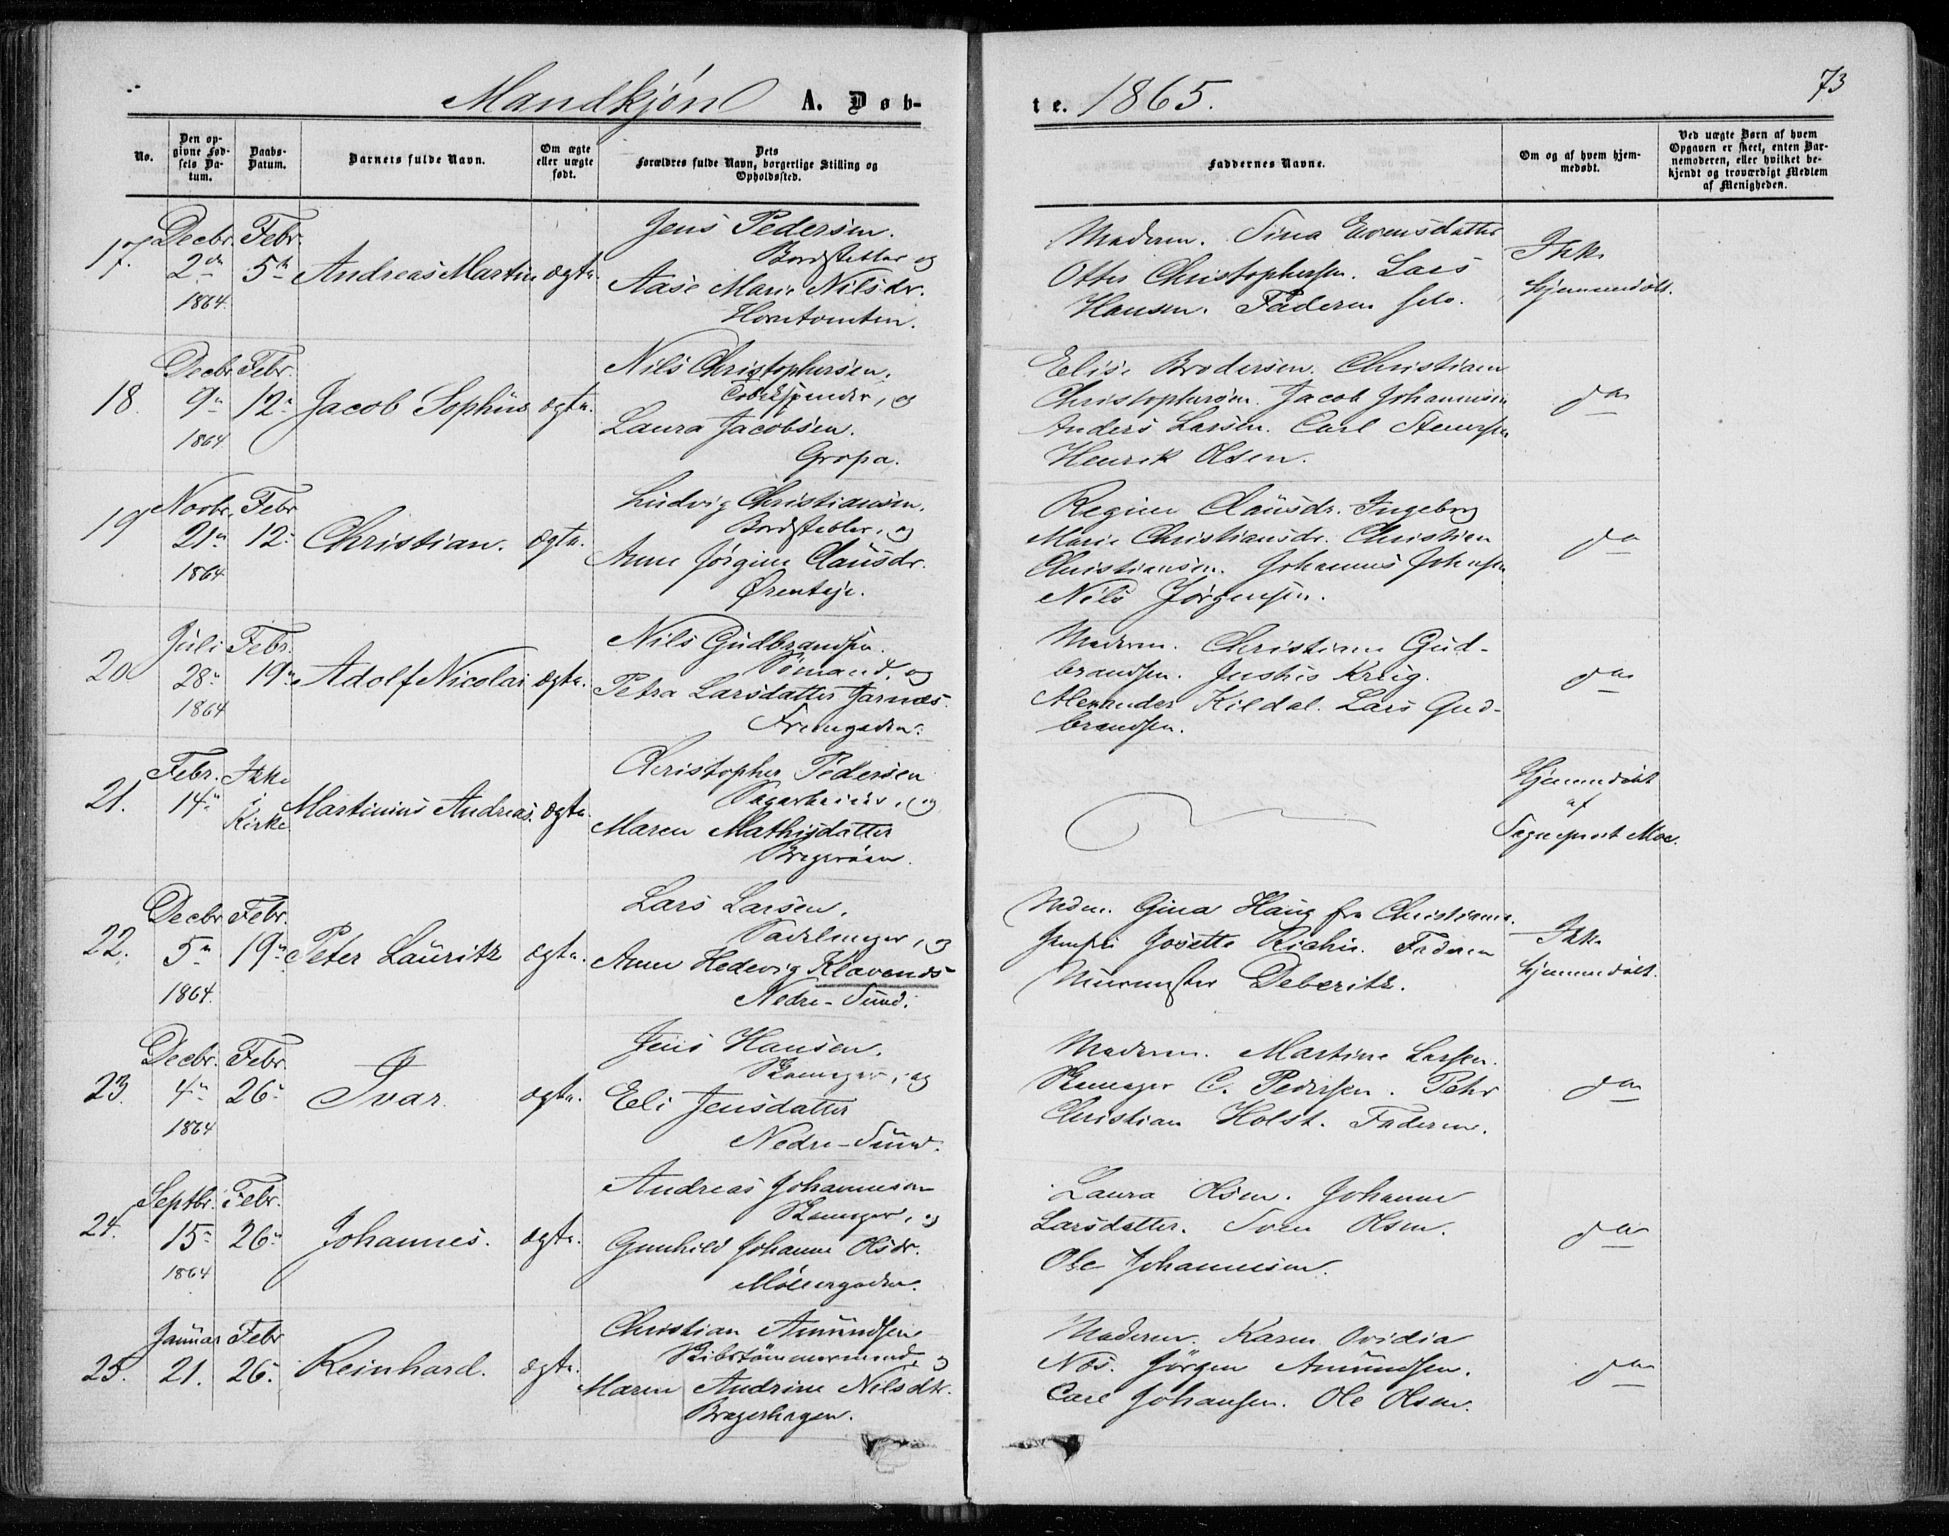 Mandkjøn A. Døb-
te. 1865. 73
No.
Den op-
givne Fød-
sels Da-
tum.
Daabs-
Datum.
Barnets fulde Navn.
Om ægte
eller uægte
født.
Dets
Forældres fulde Navn, borgerlige Stilling og
Opholdssted.
Faddernes Navne.
Om og af hvem hjem-
medøbt.
Ved uægte Børn af hvem
Opgaven er skeet, enten Bar-
nemoderen, eller hvilket be-
kjendt og troværdigt Medlem
af Menigheden.
17. Decbr. 2den 1864. Febr. 5te Andreas Martin ægte.
Jens Pedersen.
Bordstabler og
Aase Marie Nilsdr.
Horntomten.
Moderen. Sina Evensdatter
Otter Christophersen. Lars
Hansen. Faderen selv.
Ikke
hjemmedøbt.
18. Decbr. 9n 1864 Febr. 12n Jacob Sophus ægte.
Nils Christophersen.
Tobakspinder, og
Laura Jacobsen.
Gropa.
Elise Brodersen. Christian
Christophersen. Jacob Johannesen
Anders Larsen. Carl
Henrik Olsen.
do
19 Novbr. 21n 1864 Febr 12n Christian. ægte.
Ludvig Christiansen.
Bordstabler, og
Anne Jørgine Clausdr.
Ørenteje.
Regine Clausdr. Ingeborg
Marie Christiansdr. Christian
Christiansen. Johannes Johnsen
Nils Jørgensen.
do
20 Juli 28n 1864 Febr. 19n Adolf Nicolai ægte.
Nils Gudbrandsen.
Sømand, og
Petra Larsdatter Jarnæs.
Moderen. Christiane Gud-
brandsen. Justus Krug.
Alexander Kildal. Lars Gud-
brandsen.
do
21. Febr. 14n Ikke i Kirke Martinius Andreas. ægte.
Christopher Pedersen
Sagarbeider, og
Maren Mathisdatter
Bragerøen.
Hjemmedøbt
af
Sogneprest Moe.
22. Decbr 5n 1864. Febr. 19n Peter Lauritz ægte.
Lars Larsen.
Sadelmager, og
Anne Hedevig Klavenes
Nedre-Sund.
Gina Haug fra Christiania.
Josette Faderen
Murmester Deberitz.
Ikke
hjemmedøbt.
23. Decbr. 4n 1864 Febr. 26n Ivar. ægte.
Jens Hansen.
Skomager, og
Eli Jensdatter
Nedre-Sund.
Moderen. Martine Larsen.
Skomager C. Pedersen. Peter
Christian Holst. Faderen.
do
24. Septbr. 15n 1864 Febr. 26n Johannes. ægte.
Andreas Johannesen
Skomager, og
Gunhild Johanne Olsdr.
Møllergaden.
Laura Olsen. Johanne
Larsdatter. Sven Olsen.
Ole Johannesen.
do
25. Januar 21. Febr 26n Reinhard. ægte.
Christian Amundsen
Skibstømmermand, og
Maren Andrine Nilsdtr.
Bragerhagen.
Moderen. Karen Ovidia
Næs. Jörgen Amundsen.
Carl Johansen. Ole Olsen.
do